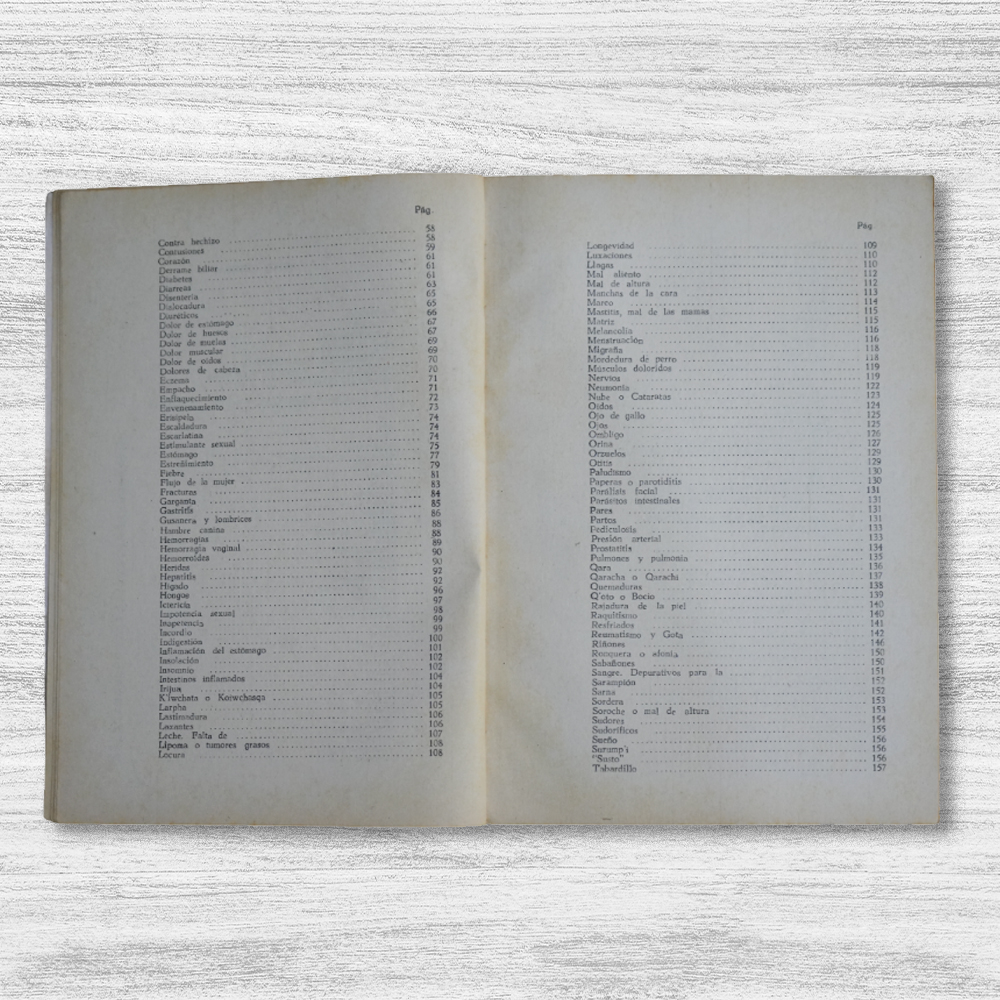 Pág.
Contra hechizo 58
Contusiones 58
Corazón 59
Derrame biliar 61
Diabetes 61
Diarreas 61
Disentería 63
Dislocadura 65
Diuréticos 65
Dolor de estómago 66
Dolor de huesos 67
Dolor de muelas 67
Dolor muscular 69
Dolor de oídos 69
Dolores de cabeza 70
Eczema 70
Empacho 71
Enflaquecimiento 71
Envenenamiento 72
Erisipela 73
Escaldadura 74
Escarlatina 74
Estimulante sexual 74
Estómago 75
Estreñimiento 77
Fiebre 79
Flujo de la mujer 81
Fracturas 83
Garganta 84
Gastritis 85
Gusanera y lombrices 86
Hambre canina 88
Hemorragias 88
Hemorragia vaginal 89
Hemorroides 90
Heridas 90
Hepatitis 92
Hígado 92
Hongos 96
Ictericia 97
Impotencia sexual 98
Inapetencia 99
Incordio 99
Indigestión 100
Inflamación del estómago 101
Insolación 102
Insomnio 102
Intestinos inflamados 104
Irijua 104
K'iwchata o Koiwchasqa 105
Larpha 105
Lastimadura 106
Laxantes 106
Leche. Falta de 107
Lipoma o tumores grasos 108
Locura 108
Pág.
Longevidad 109
Luxaciones 110
Llagas 110
Mal aliento 112
Mal de altura 112
Manchas de la cara 113
Mareo 114
Mastitis, mal de las mamas 115
Matriz 115
Melancolía 116
Menstruación 116
Migraña 118
Mordedura de perro 118
Músculos doloridos 119
Nervios 119
Neumonía 122
Nube o Cataratas 123
Oídos 124
Ojo de gallo 125
Ojos 125
Ombligo 126
Orina 127
Orzuelos 129
Otitis 129
Paludismo 130
Paperas o parotiditis 130
Parálisis facial 131
Parásitos intestinales 131
Pares 131
Partos 131
Pediculosis 133
Presión arterial 133
Prostatitis 134
Pulmones y pulmonía 135
Qara 136
Qaracha o Qarachi 137
Quemaduras 138
Q'oto o Bocio 139
Rajadura de la piel 140
Raquitismo 140
Resfriados 141
Reumatismo y Gota 142
Riñones 146
Ronquera o afonía 150
Sabañones 150
Sangre. Depurativos para la 151
Sarampión 152
Sarna 152
Sordera 153
Soroche o mal de altura 153
Sudores 154
Sudoríficos 155
Sueño 156
Surump'i 156
"Susto" 156
Tabardillo 157